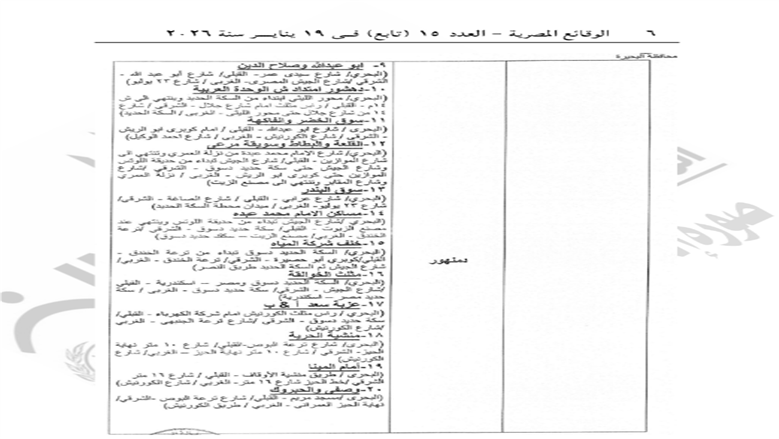 ٦ الوقائع المصرية – العدد ١٥ (تابع) فى ١٩ يناير سنة ٢٠٢٦
محافظة البحيرة
٩- ابو عبدالله وصلاح الدين
(البحرى/ شارع سيدى عمر- القبلي/ شارع أبو عبد الله -
الشرقي /شارع الجيش المصرى- الغربي / شارع ٢٣ يوليو)
١٠-دهشور امتداد ش الوحدة العربية
(البحري/ محور الليثي ابتداء من السكة الحديد وينتهي الى ش
١٤م – القبلي / راس مثلث امام شارع جلال – الشرقي / شارع
١٤ من شارع جلال حتى محور الليثي - الغربي / السكة الحديد)
١١-سوق الخضر والفاكهة
(البحرى / شارع ابو عبدالله – القبلى / امام كوبرى ابو الريش
- الشرقي / شارع الكورنيش - الغربي / شارع احمد الوكيل)
١٢-القلعة والبطاط وسويقة مرعي
(البحري/ شارع الإمام محمد عبدة من نزلة العمري وتنتهي الى
شارع الموازين – القبلي/ شارع الجيش تبداء من حديقة اللوتس
وشارع الجيش حتى سكة حديد دسوق - الشرقي /شارع
الموازين حتى كوبرى ابو الريش - الغربي / نزلة العمري
وشارع المقابر وتنتهي الى مصنع الزيت)
١٣-سوق البندر
(البحري/ شارع عرابي - القبلي / شارع الصاغة – الشرقي/
شارع ٢٣ يوليو- الغربي / ميدان محطة السكة الحديد)
١٤-مساكن الامام محمد عبده
(البحري/ شارع الجيش تبداء من حديقة اللوتس وينتهي عند
مصنع الزيوت - القبلي/ سكة حديد دسوق - الشرقي /ترعة
الخندق - الغربي/ مصنع الزيت – سكك حديد دسوق)
١٥-خلف شركة المياه
(البحري/ السكة الحديد دسوق تبداء من ترعة الخندق -
القبلي/كوبري أبو حصيرة – الشرقي/ ترعة الخندق - الغربي/
شارع الجيش ثم السكة الحديد طريق النصر)
١٦-مثلث الخوالقة
(البحري/ السكة الحديد دسوق ومصر – اسكندرية - القبلي
/شارع الجيش - الشرقي/ سكة حديد دسوق - الغربي / سكة
حديد مصر – اسكندرية)
١٧-عزبة سعد أ & ب
(البحري / راس مثلث الكورنيش امام شركة الكهرباء - القبلي/
سكة حديد دسوق - الشرقي /شارع ترعة الجنبهي - الغربي
/شارع الكورنيش)
١٨-منشية الحرية
(البحرى/ شارع ترعة البوص-القبلي/ شارع ١٠ متر نهاية
الحيز- الشرقي / شارع ١٠ متر نهاية الحيز – الغربي/ شارع
الكورنيش)
١٩-أمام المينا
(البحري / طريق منشية الأوقاف - القبلي / شارع ١٦ متر
الشرقي /خط الحيز شارع ١٦ متر- الغربي / شارع الكورنيش)
٢٠-وصفي والحبروك
(البحرى /مسجد مريم - القبلي/ شارع ترعة البوص -الشرقي/
نهاية الحيز العمراني - الغربي / طريق الكورنيش)
دمنهور